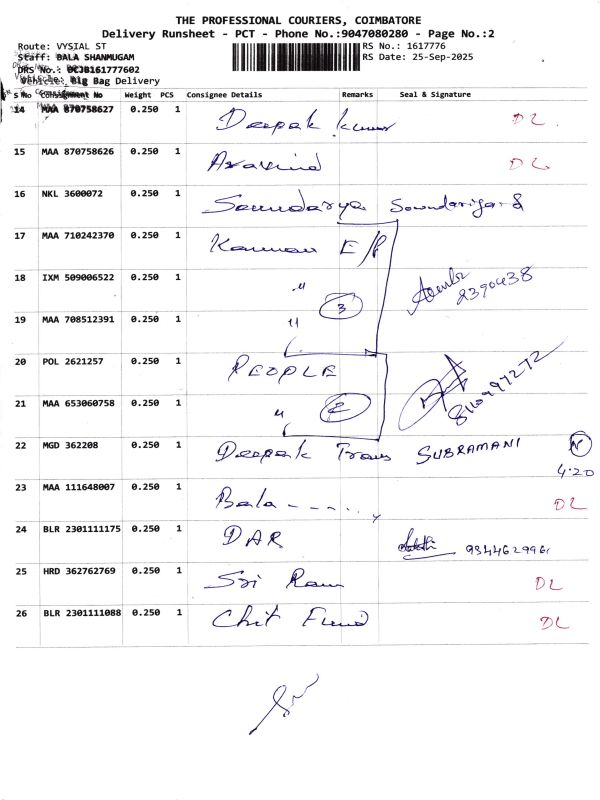 THE PROFESSIONAL COURIERS, COIMBATORE
Delivery Runsheet - PCT - Phone No.:9047080280 - Page No.:2
Route: VYSIAL ST RS No.: 1617776
Staff: BALA SHANMUGAM RS Date: 25-Sep-2025
DRS No.: DCJB161777602
Vehicle: Big Bag Delivery
S No Consignment No Weight PCS Consignee Details Remarks Seal & Signature
14 MAA 870758627 0.250 1 Deepak Kumar DL
15 MAA 870758626 0.250 1 Aravind DL
16 NKL 3600072 0.250 1 Soundarya
17 MAA 710242370 0.250 1 Kannan E/P
18 IXM 509006522 0.250 1 〃 3 2390438
19 MAA 708512391 0.250 1 〃
20 POL 2621257 0.250 1 PEOPLE
21 MAA 653060758 0.250 1 〃 2
22 MGD 362208 0.250 1 Deepak Trans SUBRAMANI N 4.20
23 MAA 111648007 0.250 1 Bala - - - - - DL
24 BLR 2301111175 0.250 1 DAR 9344629961
25 HRD 362762769 0.250 1 Sri Ram DL
26 BLR 2301111088 0.250 1 Chit Fund DL